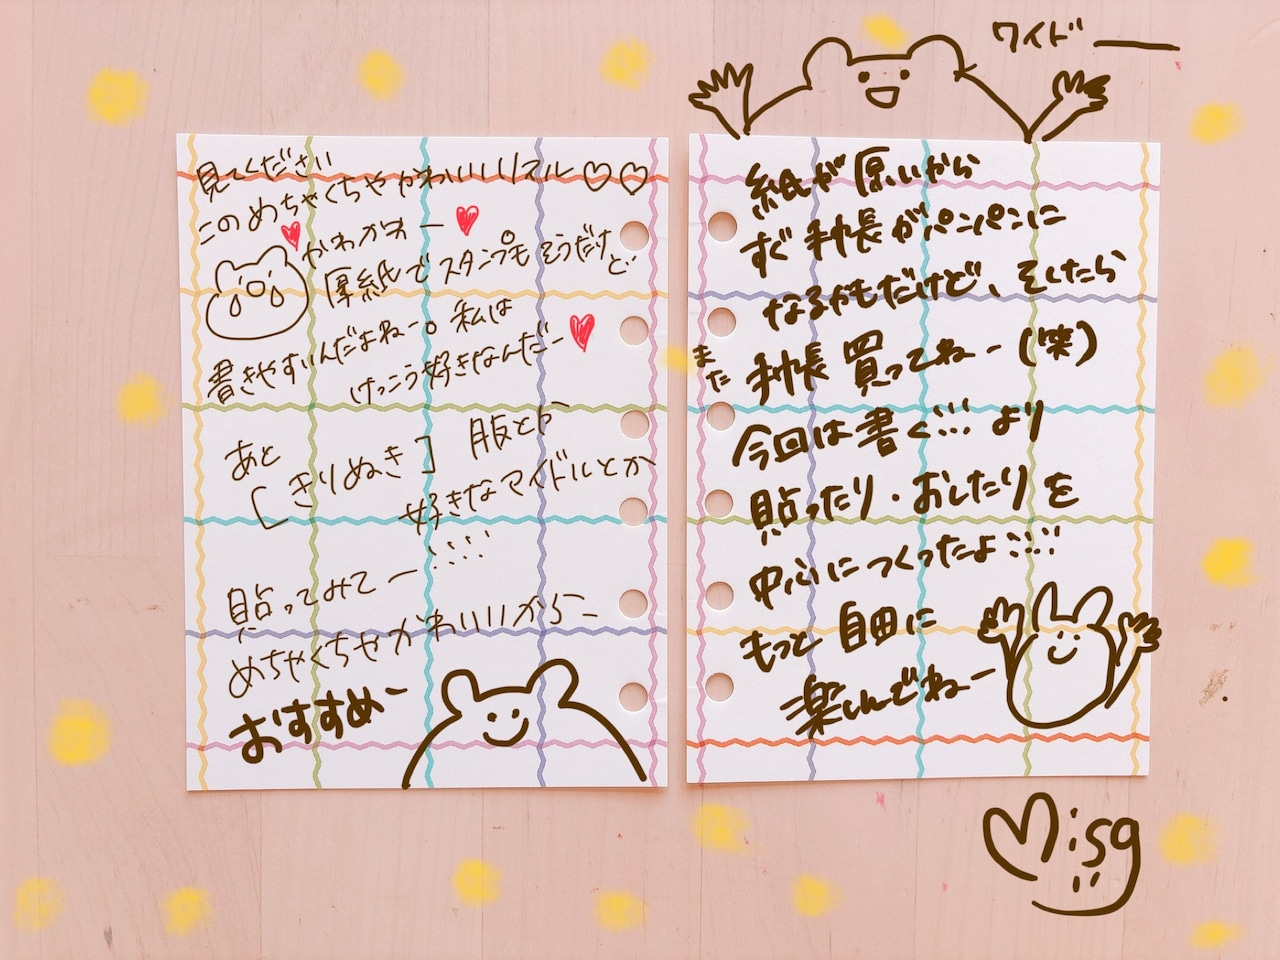 見てください
このめちゃくちゃかわいいリフィル♡♡
かわかわー
厚紙でスタンプもそうだけど
書きやすいんだよねー。私は
けっこう好きなんだー
あと
[きりぬき] 服とか
好きなアイドルとか
貼ってみてー
めちゃくちゃかわいいから
おすすめー
ワイド
紙が厚いから
すぐ手帳がパンパンに
なるかもだけど、そしたら
また手帳買ってねー(笑)
今回は書く より
貼ったり・おしたりを
中心につくったよ
もっと自由に
楽しんでねー